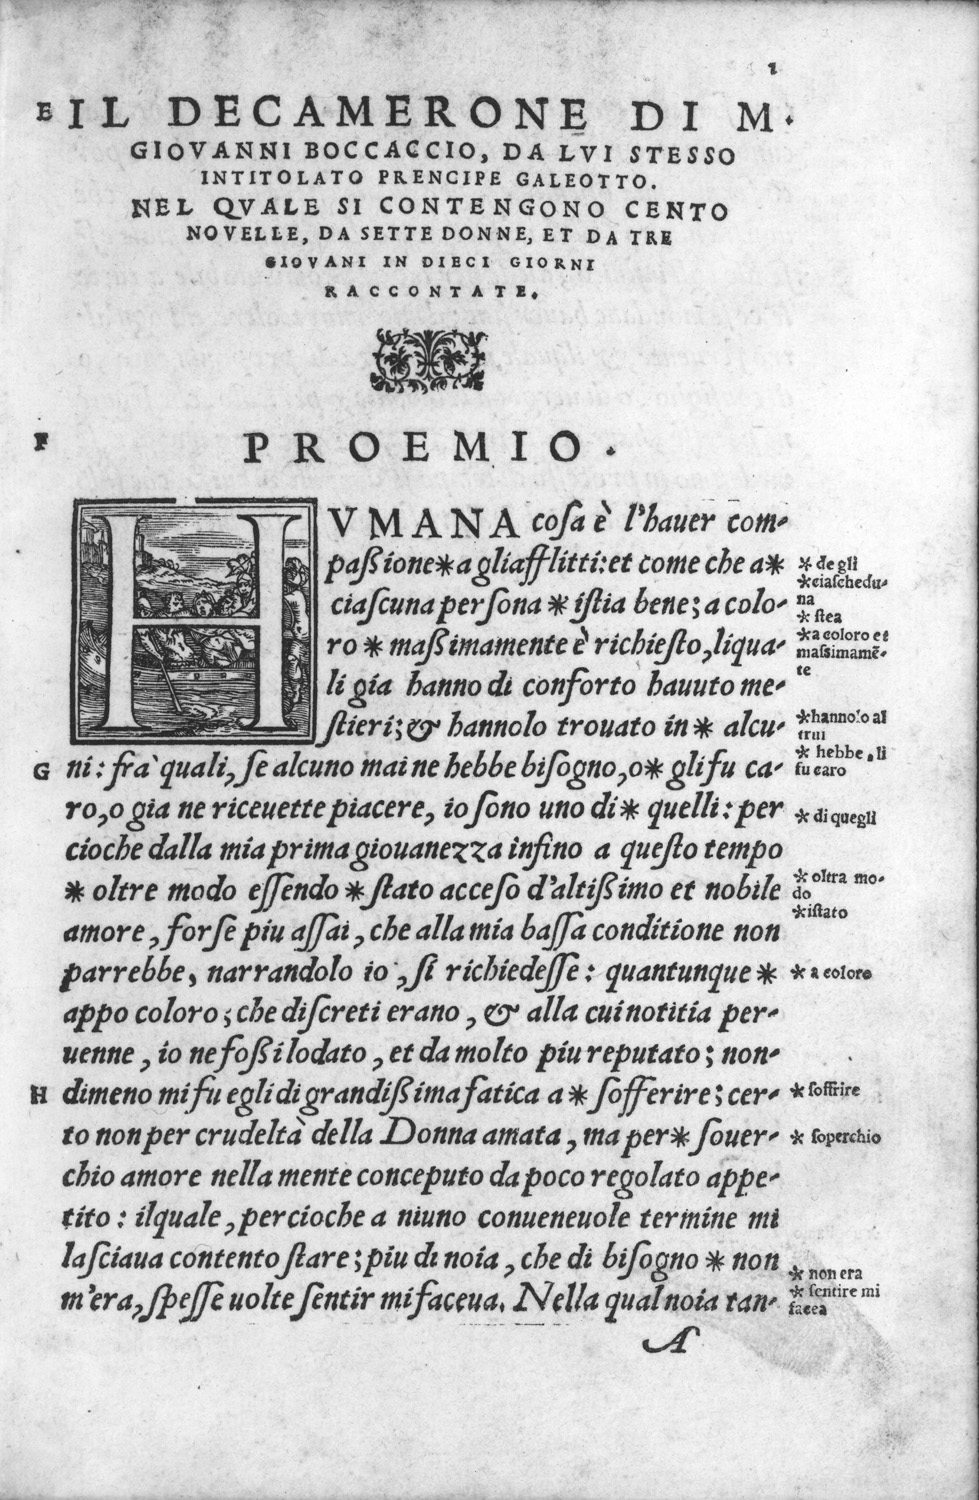 1
E IL DECAMERONE DI M.
GIOVANNI BOCCACCIO, DA LVI STESSO
INTITOLATO PRENCIPE GALEOTTO.
NEL QVALE SI CONTENGONO CENTO
NOVELLE, DA SETTE DONNE, ET DA TRE
GIOVANI IN DIECI GIORNI
RACCONTATE.
F PROEMIO.
HVMANA cosa è l'hauer com-
passione* a gli afflitti: et come che a*
ciascuna persona * istia bene; a colo-
ro * massimamente è richiesto, liqua-
li gia hanno di conforto hauuto me-
stieri; & hannolo trouato in* alcu-
G ni: fra quali, se alcuno mai ne hebbe bisogno, o* gli fu ca-
ro, o gia ne riceuette piacere, io sono uno di* quelli: per
cioche dalla mia prima giouanezza infino a questo tempo
* oltre modo essendo * stato acceso d'altissimo et nobile
amore, forse piu assai, che alla mia bassa conditione non
parrebbe, narrandolo io, si richiedesse: quantunque *
appo coloro; che discreti erano, & alla cui notitia per-
uenne, io ne fossi lodato, et da molto piu reputato; non-
H dimeno mi fu egli di grandissima fatica a* sofferire; cer-
to non per crudeltà della Donna amata, ma per* souer-
chio amore nella mente conceputo da poco regolato appe-
tito: ilquale, percioche a niuno conueneuole termine mi
lasciaua contento stare; piu di noia, che di bisogno * non
m'era, spesse uolte sentir mi faceua. Nella qual noia tan-
A
* de gli
* ciaschedu-
na
* stea
* a coloro et
massimamẽ-
te
* hannolo al
trui
* hebbe, li
fu caro
* di quegli
* oltra mo-
do
* istato
* a coloro
* soffrire
* soperchio
* non era
* sentire mi
facea